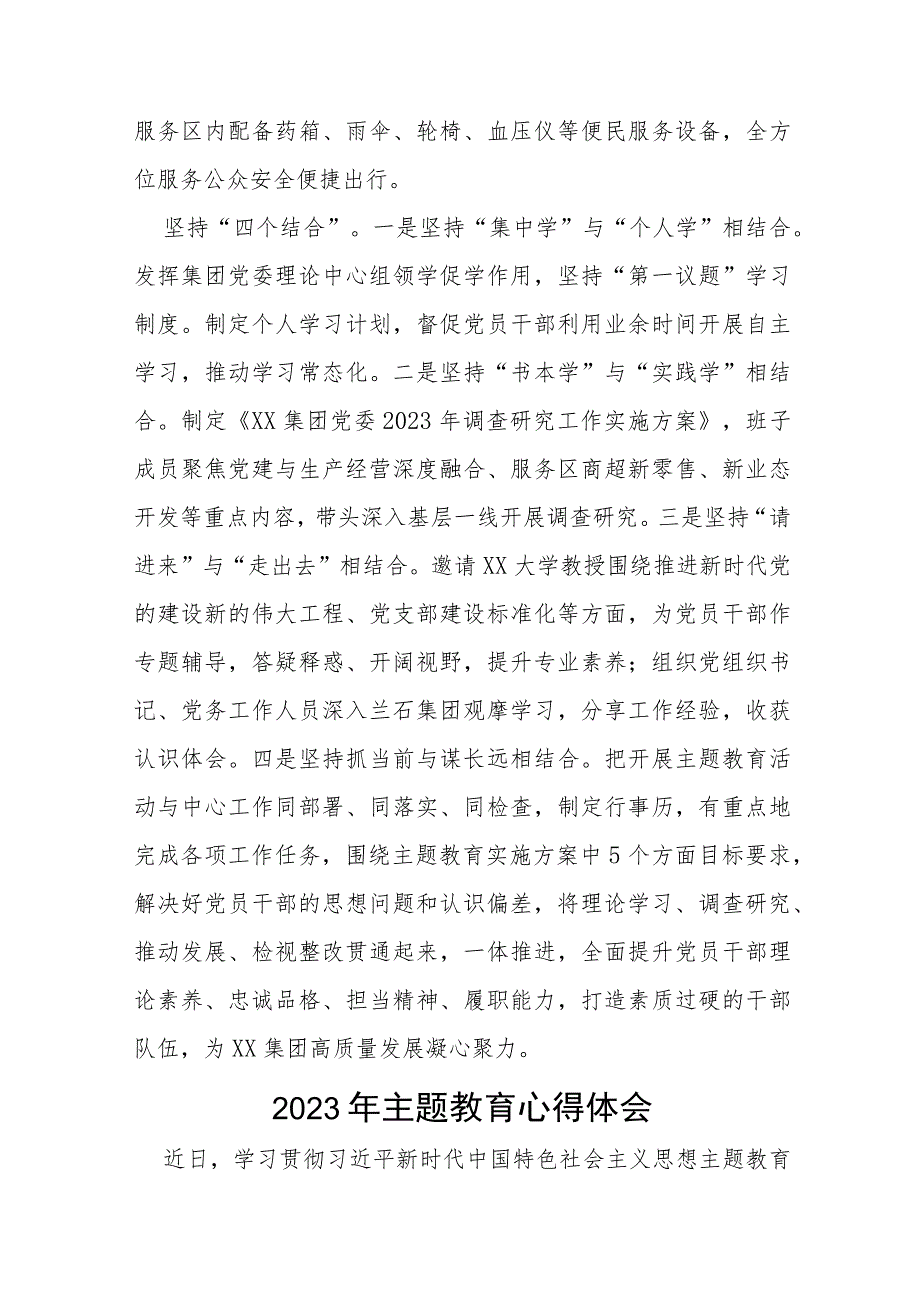 服务区内配备药箱、雨伞、轮椅、血压仪等便民服务设备，全方
位服务公众安全便捷出行。
坚持“四个结合”。一是坚持“集中学”与“个人学”相结合。
发挥集团党委理论中心组领学促学作用，坚持“第一议题”学习
制度。制定个人学习计划，督促党员干部利用业余时间开展自主
学习，推动学习常态化。二是坚持“书本学”与“实践学”相结
合。制定《XX 集团党委 2023 年调查研究工作实施方案》，班子
成员聚焦党建与生产经营深度融合、服务区商超新零售、新业态
开发等重点内容，带头深入基层一线开展调查研究。三是坚持“请
进来”与“走出去”相结合。邀请 XX 大学教授围绕推进新时代党
的建设新的伟大工程、党支部建设标准化等方面，为党员干部作
专题辅导，答疑释惑、开阔视野，提升专业素养；组织党组织书
记、党务工作人员深入兰石集团观摩学习，分享工作经验，收获
认识体会。四是坚持抓当前与谋长远相结合。把开展主题教育活
动与中心工作同部署、同落实、同检查，制定行事历，有重点地
完成各项工作任务，围绕主题教育实施方案中 5 个方面目标要求，
解决好党员干部的思想问题和认识偏差，将理论学习、调查研究、
推动发展、检视整改贯通起来，一体推进，全面提升党员干部理
论素养、忠诚品格、担当精神、履职能力，打造素质过硬的干部
队伍，为 XX 集团高质量发展凝心聚力。
2023 年主题教育心得体会
近日，学习贯彻习近平新时代中国特色社会主义思想主题教育